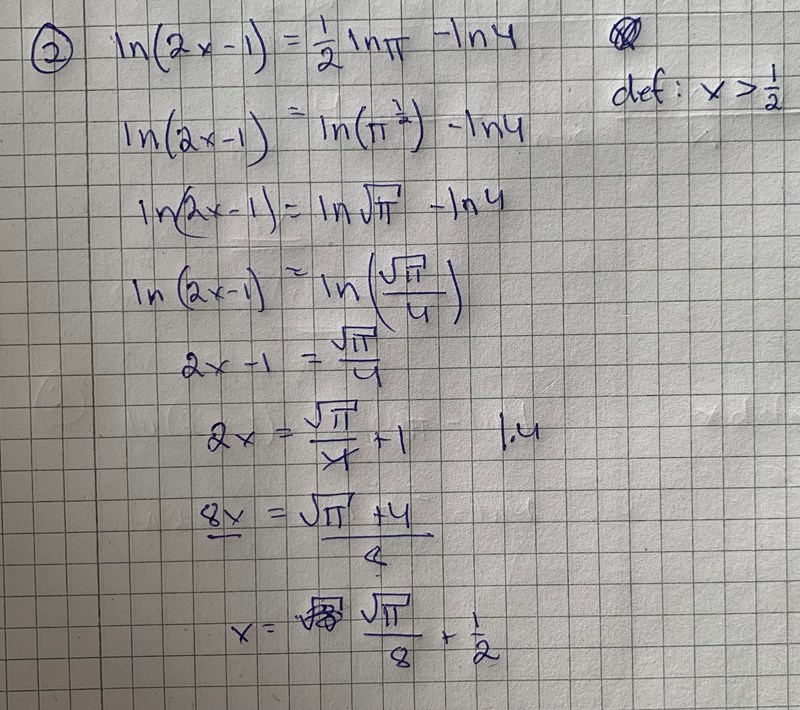 ② ln(2x-1) = 1/2 lnπ - ln4
def: x > 1/2
ln(2x-1) = ln(π^1/2) - ln4
ln(2x-1) = ln√π - ln4
ln(2x-1) = ln(√π/4)
2x-1 = √π/4
2x = √π/4 + 1 |·4
8x = √π + 4
8
x = √π/8 + 1/2